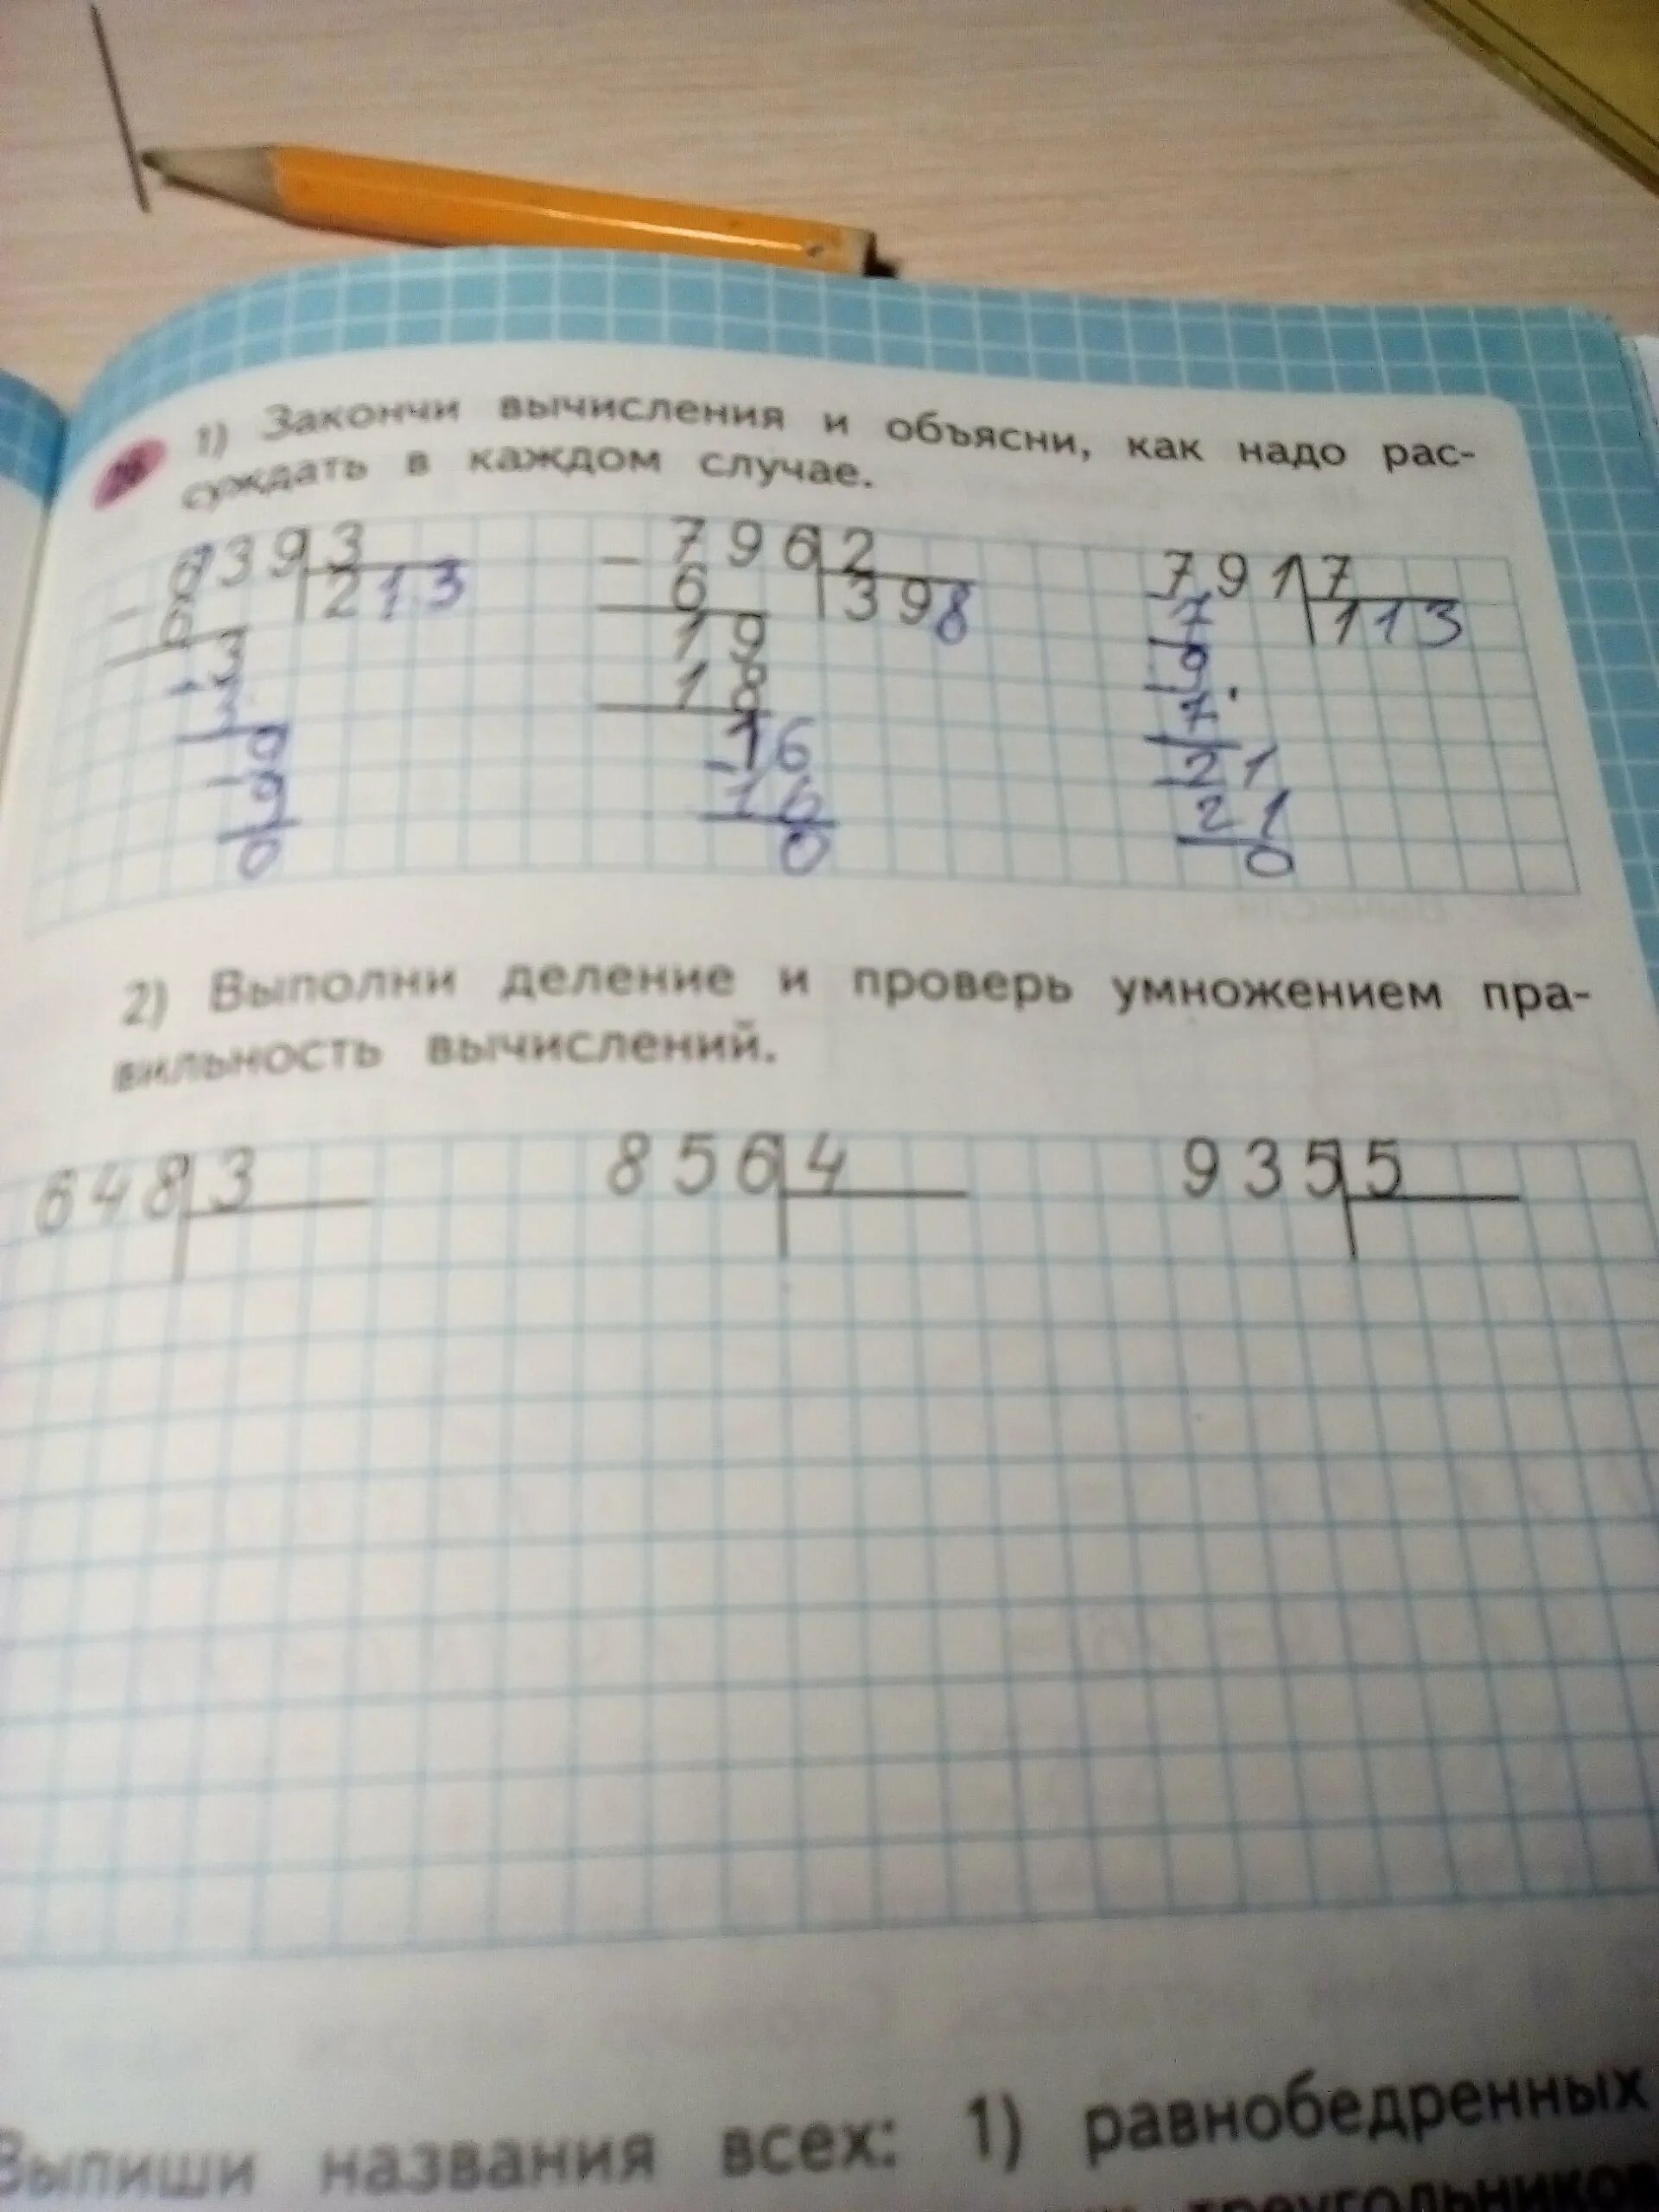 26 1) Закончи вычисления и объясни, как надо рас-
суждать в каждом случае.
639 3 796 2 791 7
6 213 6 398 7 113
3 19 9
3 18 7
9 16 21
9 16 21
0 0 0
2) Выполни деление и проверь умножением пра-
вильность вычислений.
648 3 856 4 935 5
Выпиши названия всех: 1) равнобедренных
треугольников